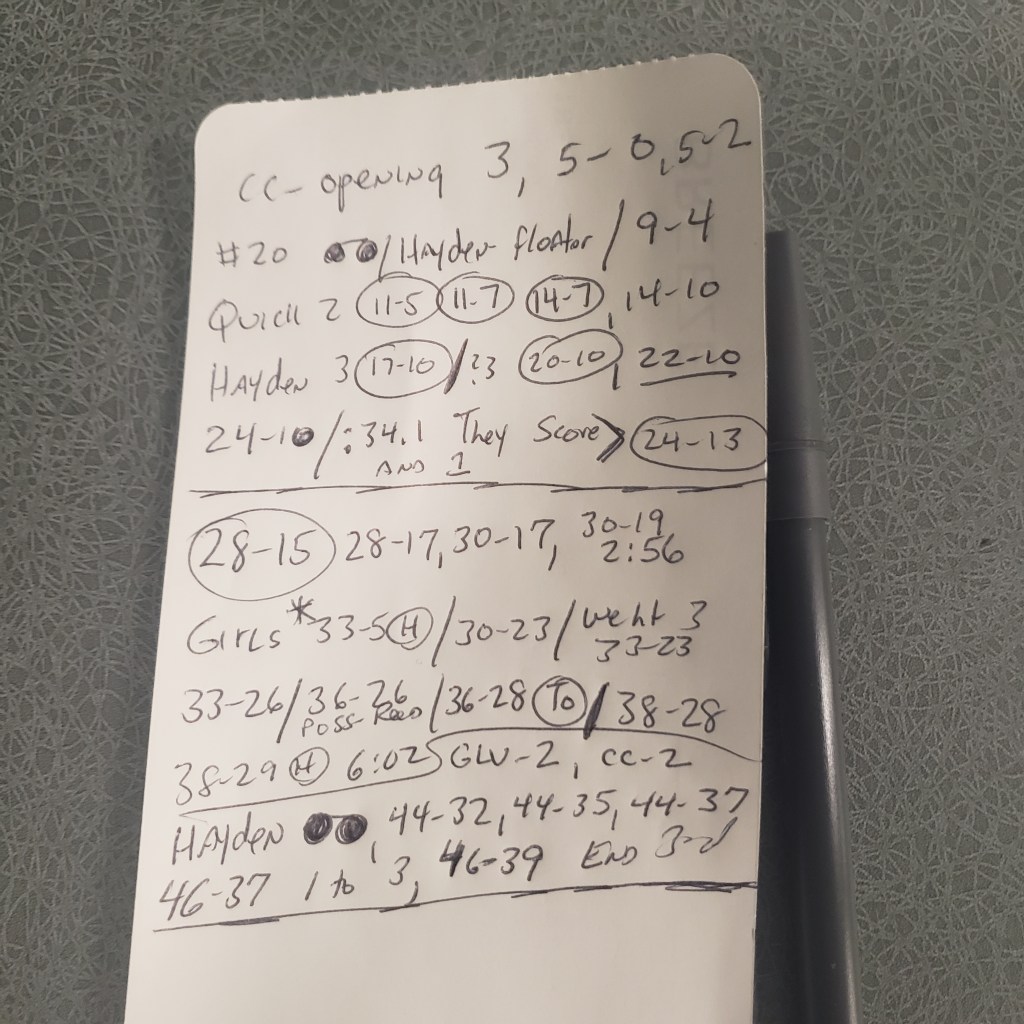 CC- opening 3, 5-0, 5-2
#20 / Hayden Floator / 9-4
Quick 2 11-5 11-7 14-7, 14-10
Hayden 3 17-10 / ?3 20-10, 22-10
24-10 / :34.1 They Score > 24-13
AND 1
28-15 28-17, 30-17, 30-19
2:56
Girls *33-5 H / 30-23 / Weht 3
33-23
33-26 / 36-26 / 36-28 TO / 38-28
Poss
38-29 H 6:02 GLV-2, CC-2
Hayden, 44-32, 44-35, 44-37
46-37 1 to 3, 46-39 End 3rd